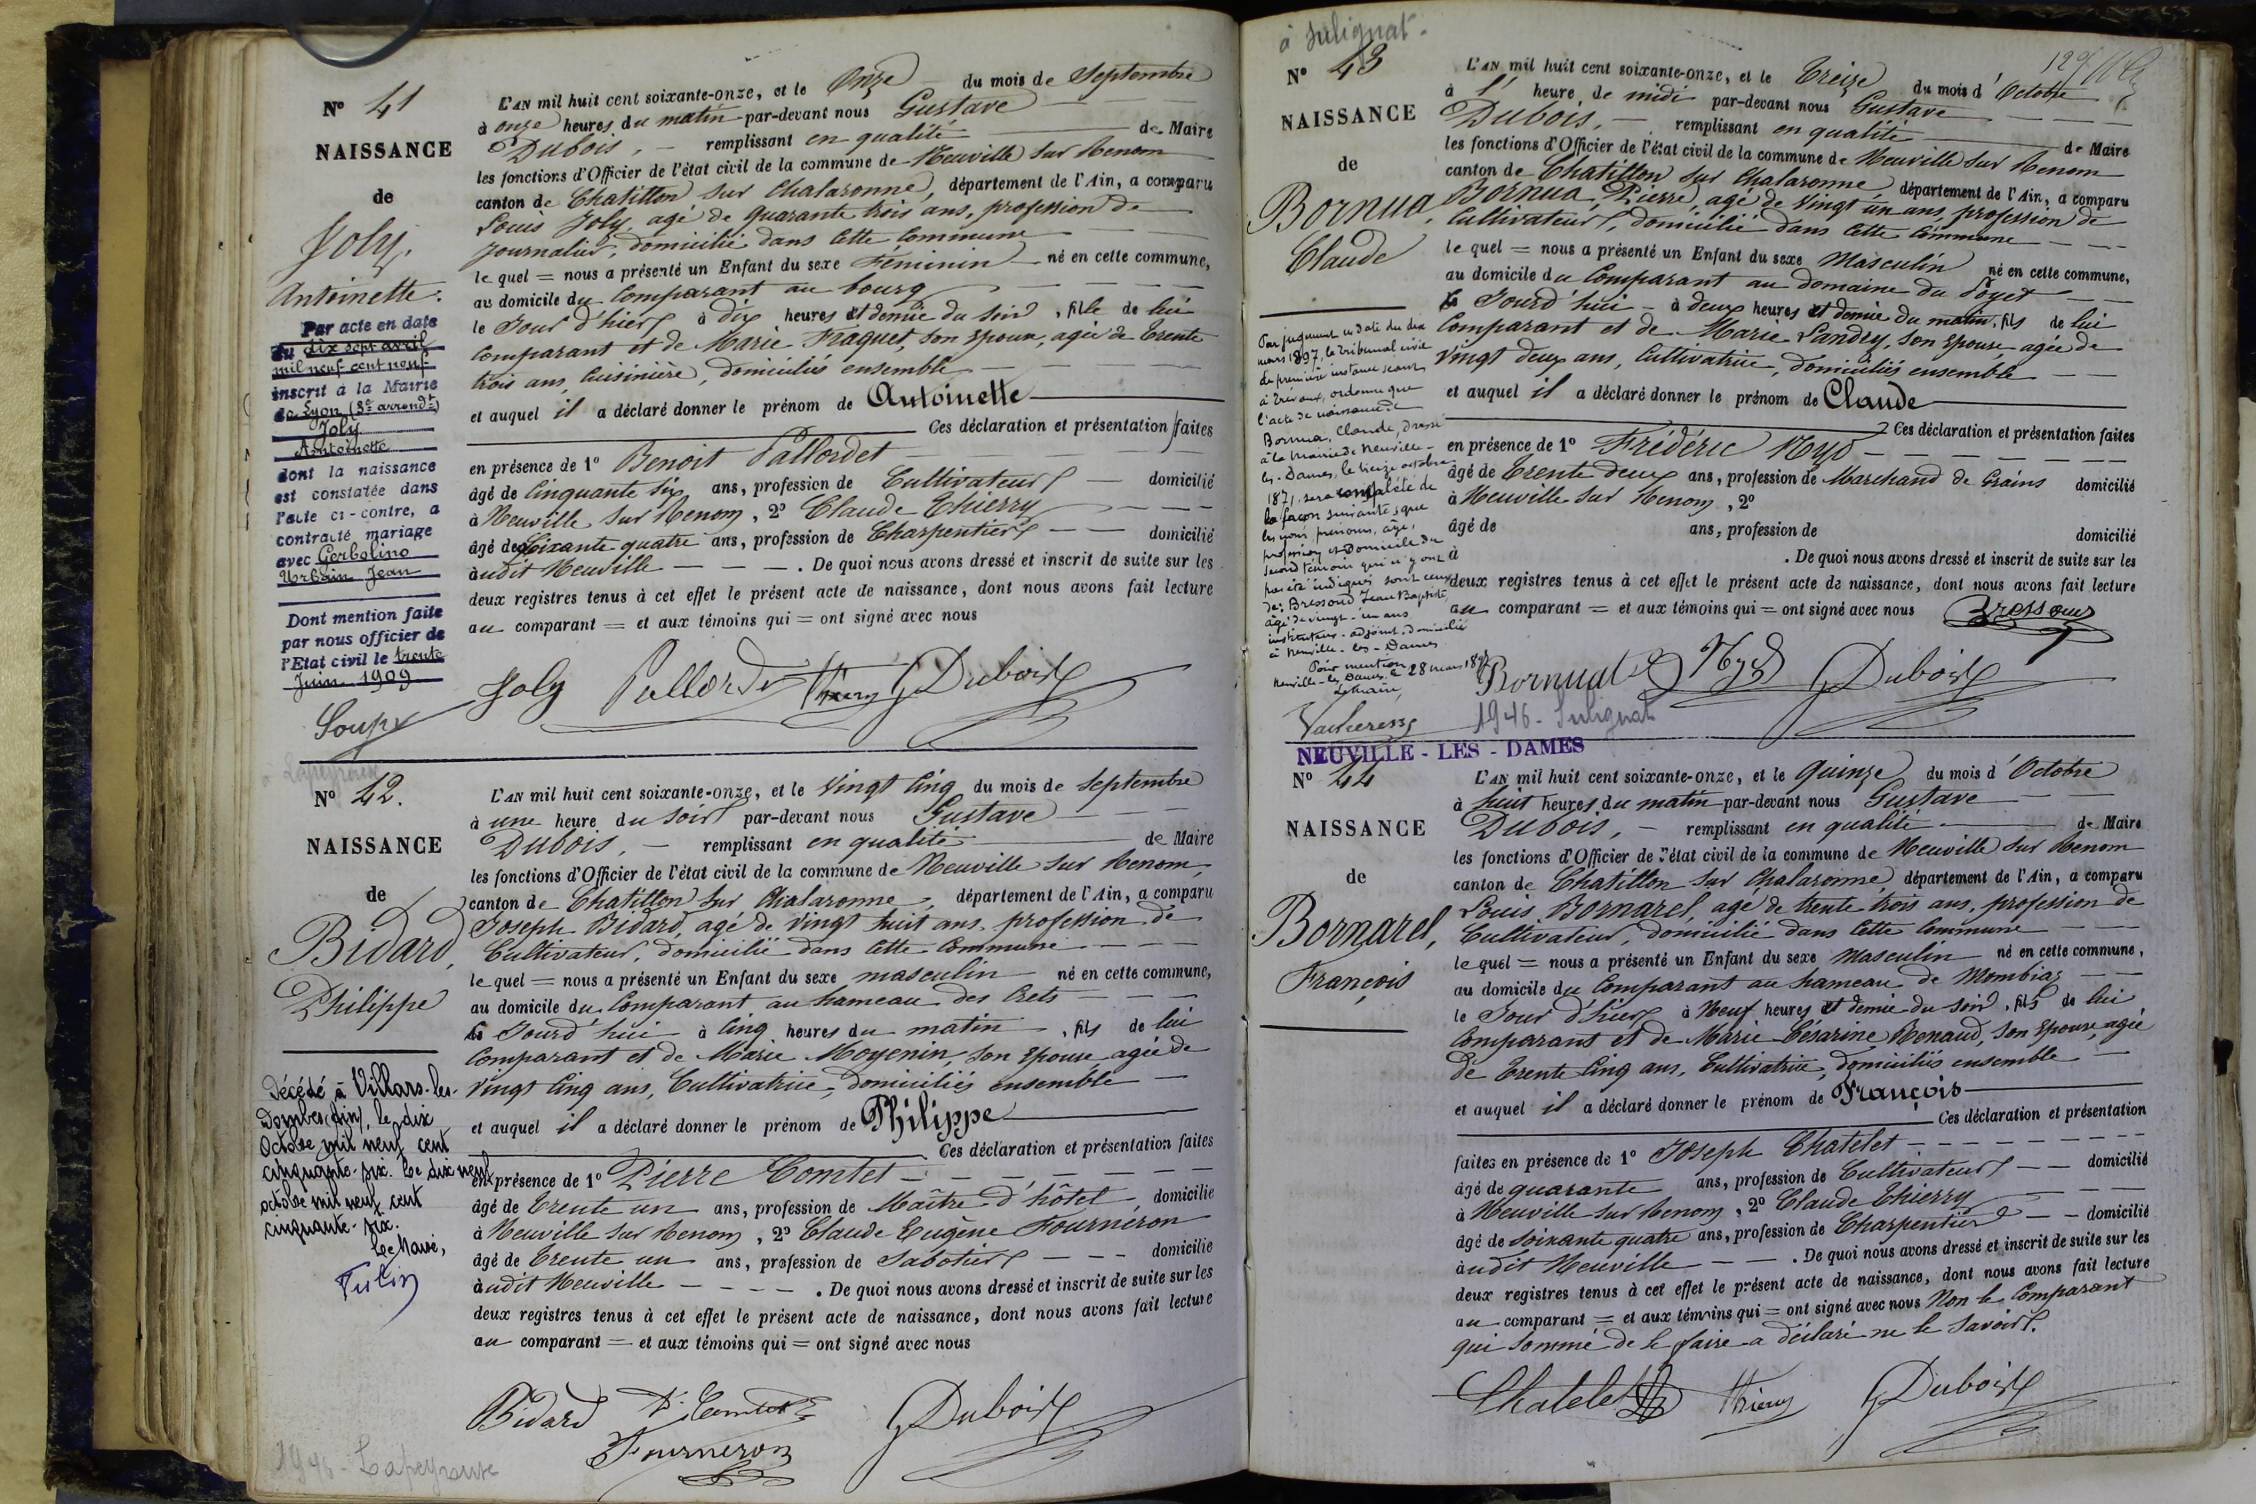 N° 41
NAISSANCE
de
Joly,
Antoinette.
Par acte en date
du dix sept avril
mil neuf cent neuf
inscrit à la Mairie
de Lyon (3e arrondt)
Joly
Antoinette
dont la naissance
est constatée dans
l'acte ci-contre, a
contracté mariage
avec Gerbolino
Urbain Jean
Dont mention faite
par nous officier de
l'Etat civil le trente
Juin 1909
L'AN mil huit cent soixante-onze, et le Onze du mois de Septembre
à onze heures du matin par-devant nous Gustave
Dubois, — remplissant en qualité de Maire
les fonctions d'Officier de l'état civil de la commune de Neuville sur Renom
canton de Chatillon sur Chalaronne, département de l'Ain, a comparu
Louis Joly, agé de quarante trois ans, profession de
Journalier, domicilié dans cette commune
le quel = nous a présenté un Enfant du sexe Féminin né en cette commune,
au domicile du Comparant au bourg
le Jour d'hier à dix heures et demie du soir, fille de lui
Comparant et de Marie Fraquet, son Epouse, agée de trente
trois ans, Cuisinière, domiciliés ensemble
et auquel il a déclaré donner le prénom de Antoinette
Ces déclaration et présentation faites
en présence de 1° Benoit Pallordet
âgé de Cinquante six ans, profession de Cultivateur domicilié
à Neuville sur Renom, 2° Claude Thierry
âgé de Soixante quatre ans, profession de Charpentier domicilié
àudit Neuville — — — . De quoi nous avons dressé et inscrit de suite sur les
deux registres tenus à cet effet le présent acte de naissance, dont nous avons fait lecture
au comparant = et aux témoins qui = ont signé avec nous
Joly Pallordet Thierry G Dubois
N° 42.
NAISSANCE
de
Bidard,
Philippe
Décédé à Villars-les-
Dombes (Ain), le dix
Octobre mil neuf cent
cinquante-six. Le dix neuf
octobre mil neuf cent
cinquante-six.
Le Maire,
L'AN mil huit cent soixante-onze, et le Vingt Cinq du mois de Septembre
à une heure du soir par-devant nous Gustave
Dubois, — remplissant en qualité de Maire
les fonctions d'Officier de l'état civil de la commune de Neuville sur Renom,
canton de Chatillon sur Chalaronne, département de l'Ain, a comparu
Joseph Bidard, agé de Vingt huit ans, profession de
Cultivateur, domicilié dans cette Commune
le quel = nous a présenté un Enfant du sexe masculin né en cette commune,
au domicile du Comparant au hameau des Crets
le Jourd'hui à Cinq heures du matin, fils de lui
Comparant et de Marie Moyenin, son Epouse agée de
Vingt Cinq ans, Cultivatrice, domiciliés ensemble
et auquel il a déclaré donner le prénom de Philippe
Ces déclaration et présentation faites
en présence de 1° Pierre Comtet
âgé de Trente un ans, profession de Maître d'hôtel, domicilié
à Neuville sur Renom, 2° Claude Eugène Fournéron
âgé de Trente un ans, profession de Sabotier domicilié
àudit Neuville — — — . De quoi nous avons dressé et inscrit de suite sur les
deux registres tenus à cet effet le présent acte de naissance, dont nous avons fait lecture
au comparant = et aux témoins qui = ont signé avec nous
Bidard P. Comtet G Dubois
Fourneron
1946 - Lapeyrouse
à Sulignat.
N° 43
NAISSANCE
de
Bornua,
Claude
Par jugement en date du dix
mars 1897, le tribunal civil
de première instance séant
à Trévoux, ordonne que
l'acte de naissance de
Bornua, Claude, dressé
à la mairie de Neuville-
les-Dames, le treize octobre
1871, sera complété de
la façon suivante, que
les nom, prénoms, âge,
profession et domicile du
second témoin qui n'y ont
pas été indiqués sont ceux
de: Bressoud Jean Baptiste,
âgé de vingt-un ans
instituteur-adjoint, domicilié
à Neuville-les-Dames.
Pour mention
Neuville-les-Dames, le 28 mars 1897
Le Maire,
L'AN mil huit cent soixante-onze, et le Treize du mois d'Octobre
à l' heure, de midi par-devant nous Gustave
Dubois, — remplissant en qualité de Maire
les fonctions d'Officier de l'état civil de la commune de Neuville sur Renom
canton de Chatillon sur Chalaronne, département de l'Ain, a comparu
Bornua, Pierre, agé de Vingt un ans, profession de
Cultivateur, domicilié dans cette Commune
le quel = nous a présenté un Enfant du sexe Masculin né en cette commune,
au domicile du Comparant au domaine du Poyet
le Jourd'hui à deux heures et demie du matin, fils de lui
Comparant et de Marie Landry, son Epouse, agée de
Vingt deux ans, Cultivatrice, domiciliés ensemble
et auquel il a déclaré donner le prénom de Claude
Ces déclaration et présentation faites
en présence de 1° Frédéric Nyd
âgé de Trente deux ans, profession de Marchand de Grains domicilié
à Neuville sur Renom, 2°
âgé de ans, profession de domicilié
à . De quoi nous avons dressé et inscrit de suite sur les
deux registres tenus à cet effet le présent acte de naissance, dont nous avons fait lecture
au comparant = et aux témoins qui = ont signé avec nous Bressoud
Bornuat Nyd G Dubois
1946 - Sulignat
NEUVILLE - LES - DAMES
N° 44
NAISSANCE
de
Bornarel,
François
L'AN mil huit cent soixante-onze, et le Quinze du mois d'Octobre
à huit heures du matin par-devant nous Gustave
Dubois, — remplissant en qualité de Maire
les fonctions d'Officier de l'état civil de la commune de Neuville sur Renom
canton de Chatillon sur Chalaronne, département de l'Ain, a comparu
Louis Bornarel, agé de trente trois ans, profession de
Cultivateur, domicilié dans cette Commune
le quel = nous a présenté un Enfant du sexe Masculin né en cette commune,
au domicile du Comparant au hameau de Mombiaz
le Jour d'hier à Neuf heures et demie du soir, fils de lui
Comparant et de Marie Césarine Renaud, son Epouse, agée
de Trente Cinq ans, Cultivatrice, domiciliés ensemble
et auquel il a déclaré donner le prénom de François
Ces déclaration et présentation
faites en présence de 1° Joseph Chatelet
âgé de quarante ans, profession de Cultivateur domicilié
à Neuville sur Renom, 2° Claude Thierry
âgé de soixante quatre ans, profession de Charpentier domicilié
àudit Neuville — — . De quoi nous avons dressé et inscrit de suite sur les
deux registres tenus à cet effet le présent acte de naissance, dont nous avons fait lecture
au comparant = et aux témoins qui = ont signé avec nous Non le Comparant
qui sommé de le faire a déclaré ne le savoir.
Chatelet Thierry G Dubois